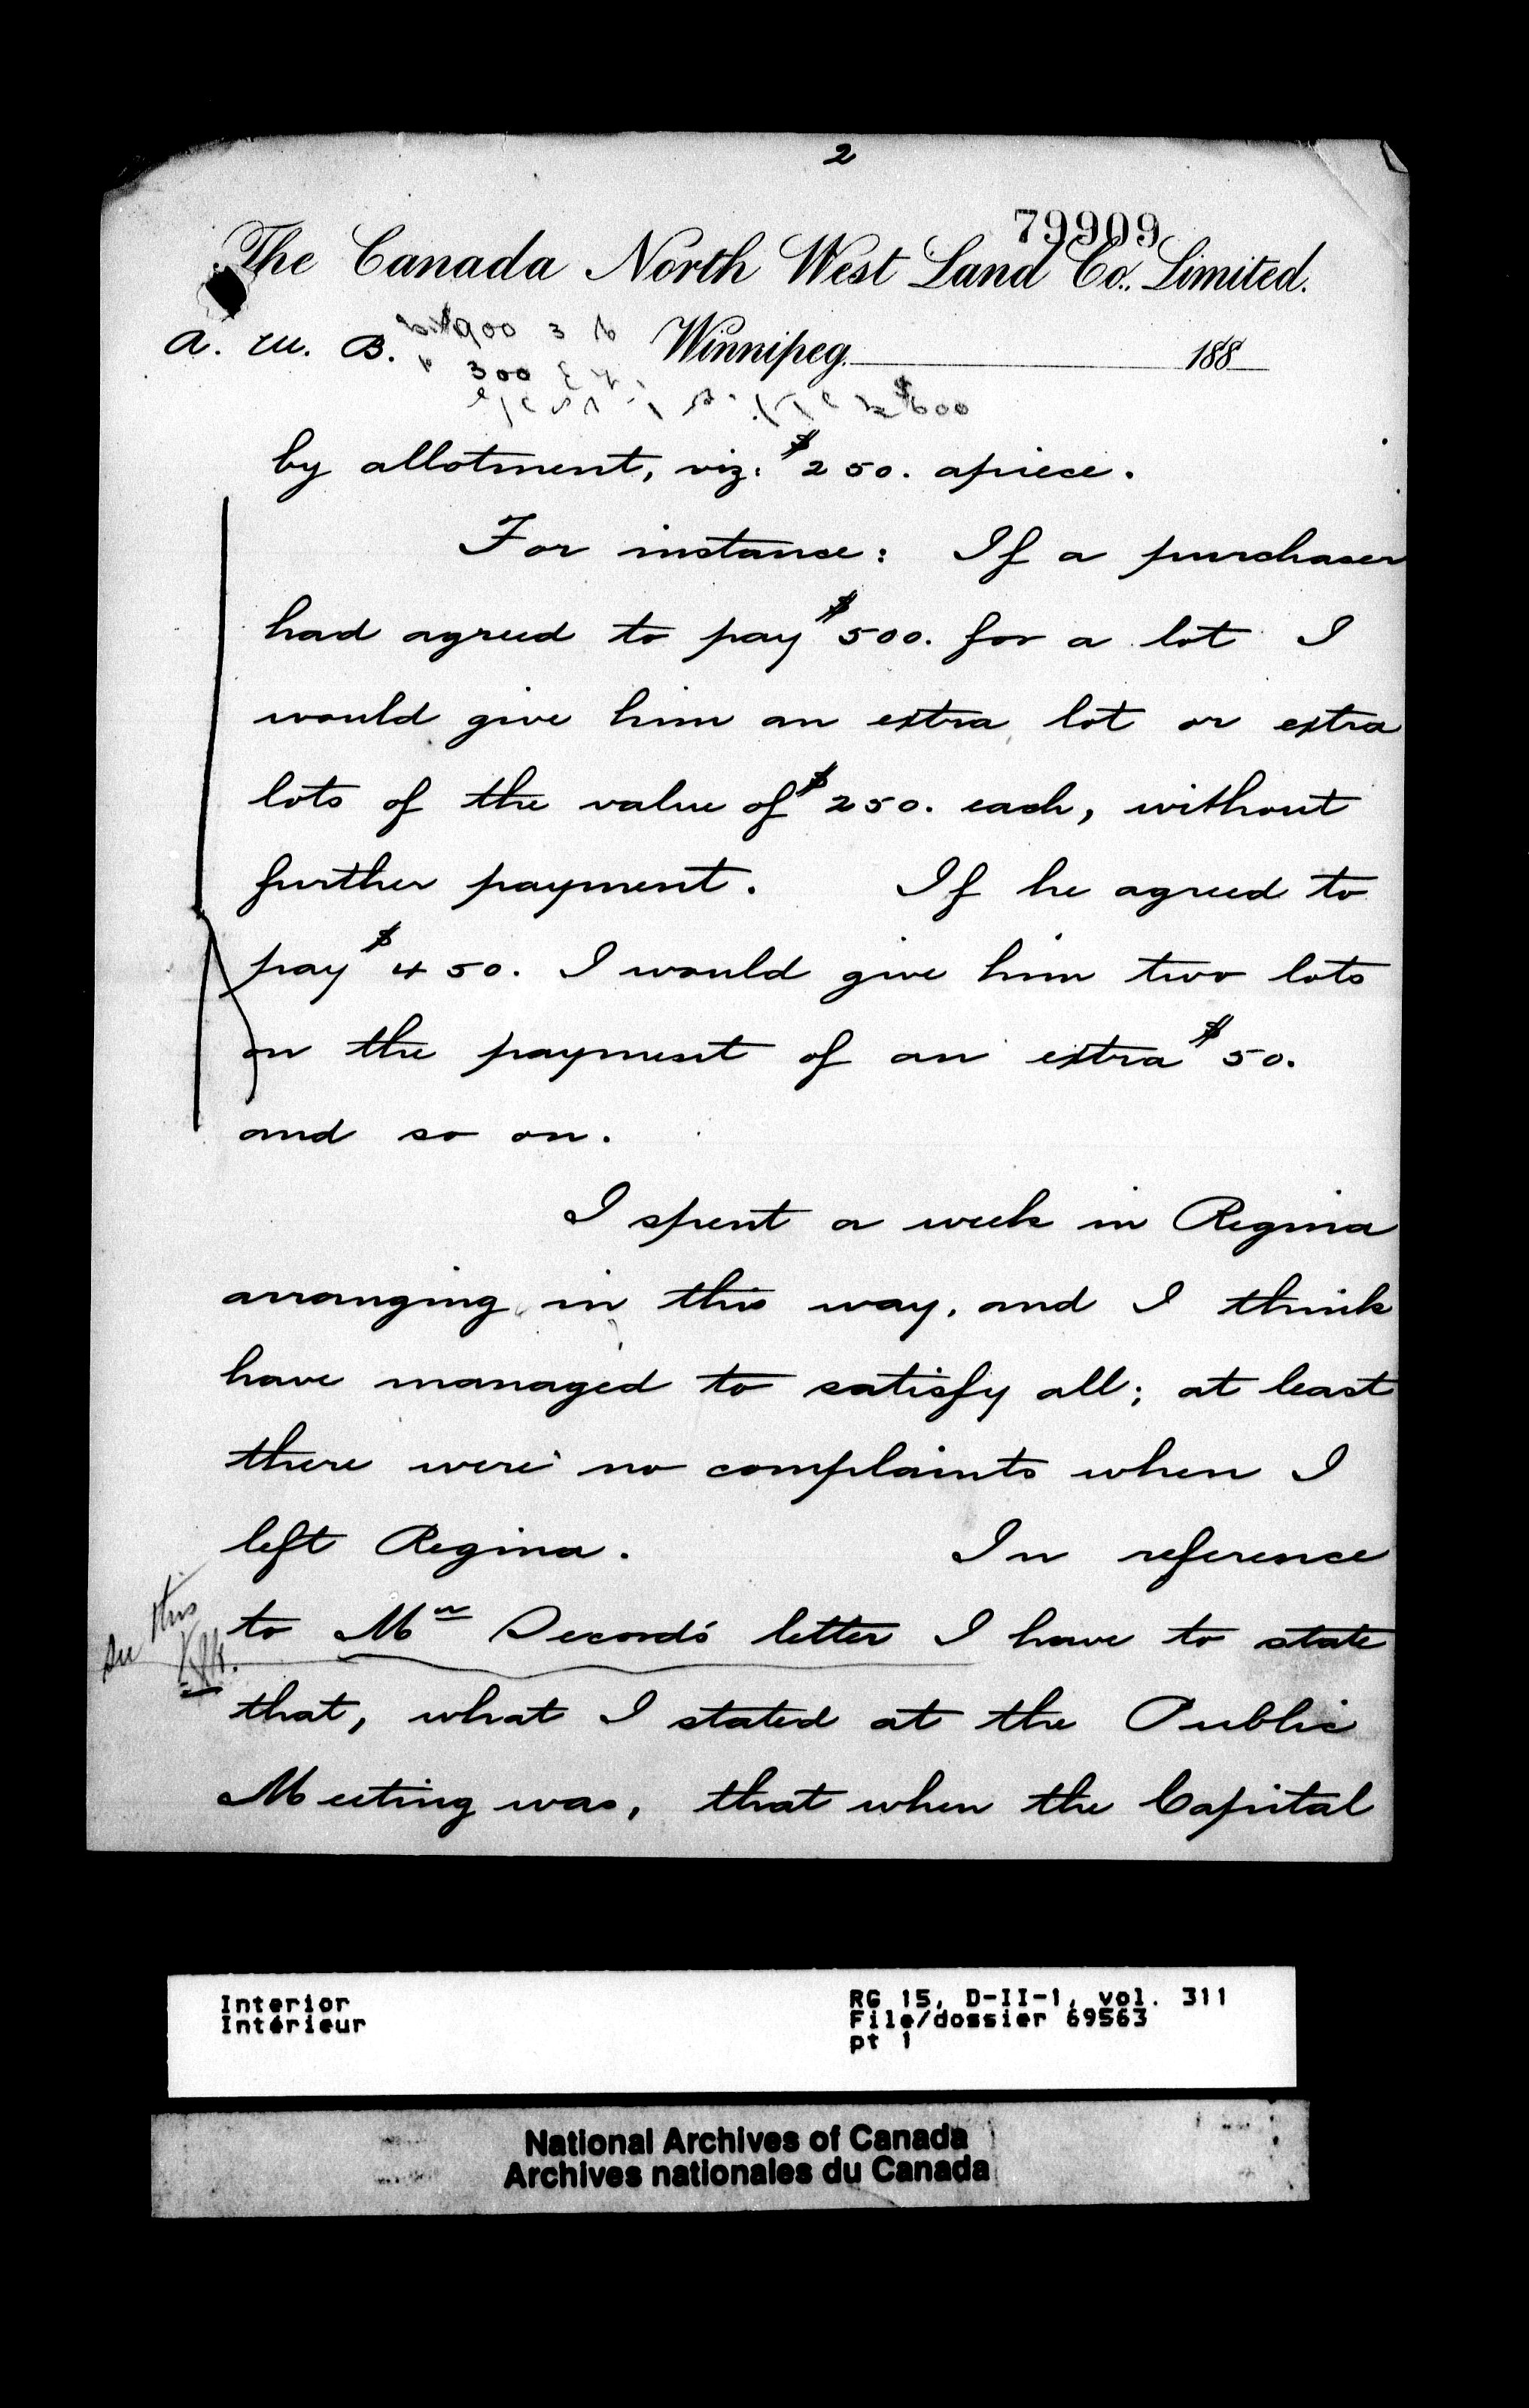 2
79909
The Canada North West Land Co. Limited.
A. W. B. $900
Winnipeg 188
300
$600
by allotment, viz: $250. apiece.
For instance: If a purchaser
had agreed to pay $500. for a lot I
would give him an extra lot or extra
lots of the value of $250. each, without
further payment. If he agreed to
pay $450. I would give him two lots
on the payment of an extra $50.
and so on.
I spent a week in Regina
arranging in this way, and I think
have managed to satisfy all; at least
there were no complaints when I
left Regina. In reference
to Mr Secord's letter I have to state
See this
that, what I stated at the Public
Meeting was, that when the Capital
Interior
Intérieur
RG 15, D-II-1, vol. 311
File/dossier 69563
pt 1
National Archives of Canada
Archives nationales du Canada